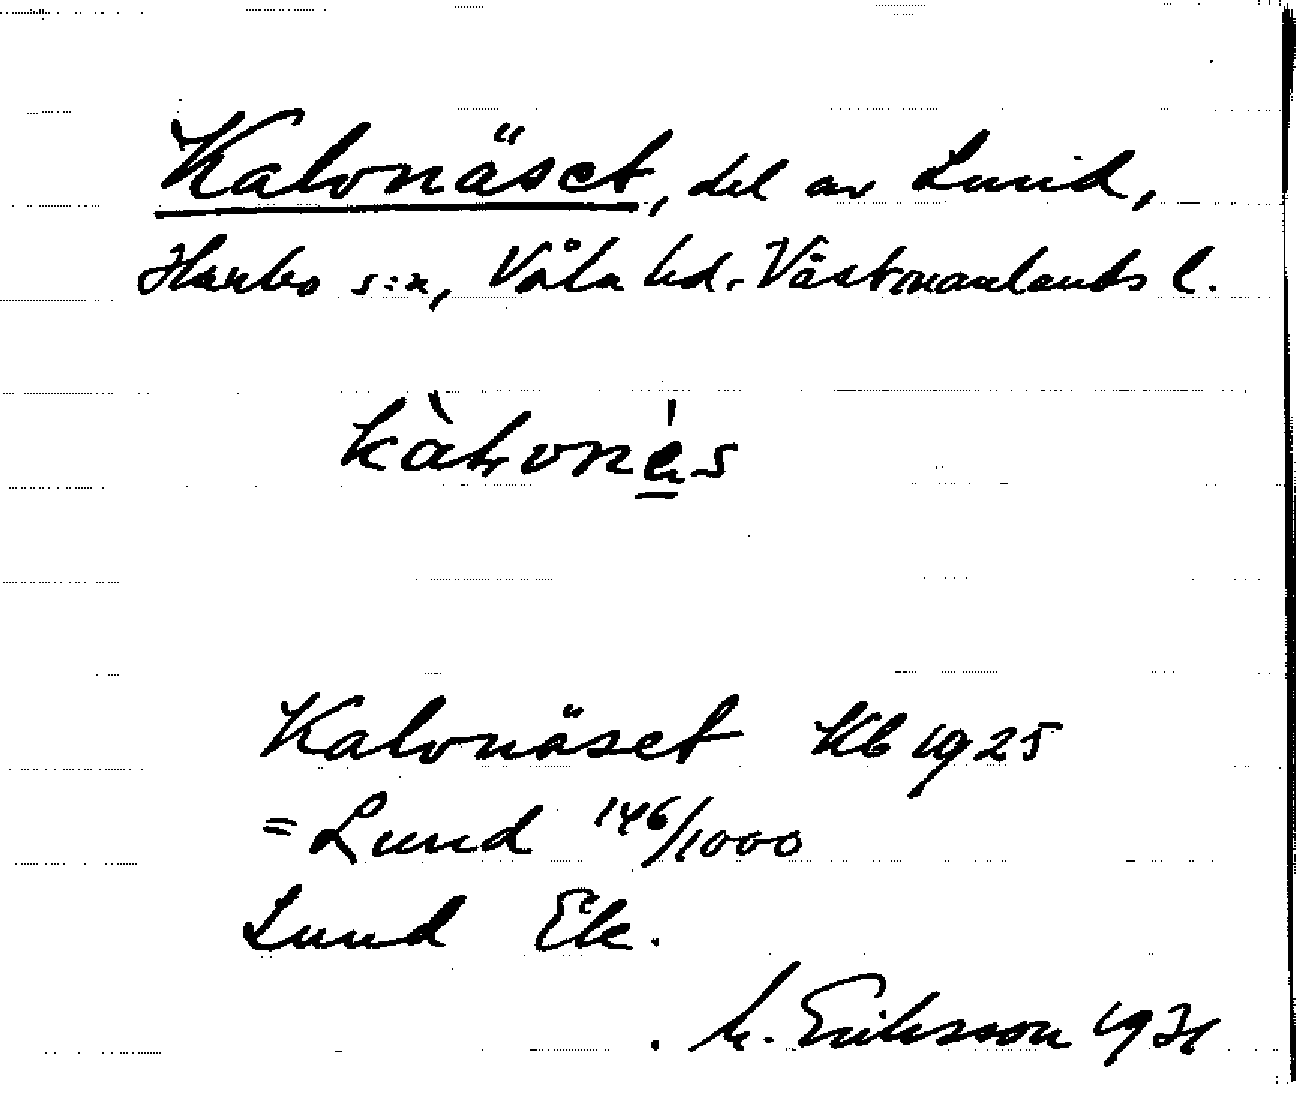 Kalvnäset, del av Lund,
Harbo s:n, Våla hd. Västmanlands l.
Kalvnäset Kb 1925
= Lund 146/1000
Lund Ek.
M. Eriksson 1931